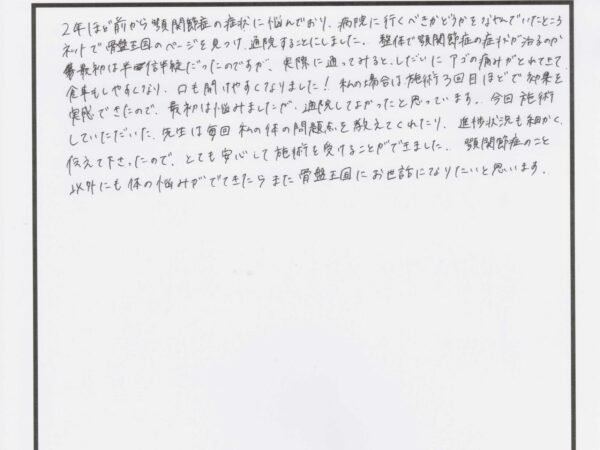 2年ほど前から顎関節症の症状に悩んでおり、病院に行くべきかどうかをなやんでいたところ
ネットで骨盤王国のページを見つけ、通院することにしました。整体で顎関節症の症状が治るのか
最初は半信半疑だったのですが、実際に通ってみると、しだいにアゴの痛みがとれてきて
食事もしやすくなり、口も開けやすくなりました！私の場合は施術3回目ほどで効果を
実感できたので、最初は悩みましたが、通院してよかったと思っています。今回施術
していただいた先生は毎回私の体の問題点を教えてくれたり、進捗状況も細かく
伝えて下さったので、とても安心して施術を受けることができました。顎関節症のこと
以外にも体の悩みがでてきたらまた骨盤王国にお世話になりたいと思います。